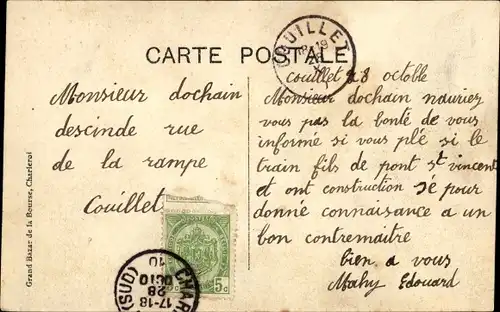 CARTE POSTALE
COUILLET
Monsieur dochain
descinde rue
de la rampe
Couillet
couillet 28 octoble
Monsieur dochain nauriez
vous pas la bonté de vous
informé si vous plé si le
train fils de pont St vincent
et ont construction Sé pour
donné connaisance a un
bon contremaitre
bien a vous
Mahy Edouard
Grand Bazar de la Bourse, Charleroi
5c
CHAR
(SUD)
17-18
28
OCT
10